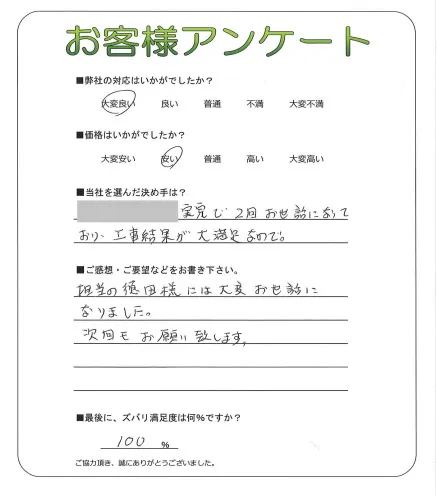 お客様アンケート
■弊社の対応はいかがでしたか?
大変良い 良い 普通 不満 大変不満
■価格はいかがでしたか?
大変安い 安い 普通 高い 大変高い
■当社を選んだ決め手は?
実兄で2回お世話になって
おり、工事結果が大満足なので。
■ご感想・ご要望などをお書き下さい。
担当の徳田様には大変お世話に
なりました。
次回もお願い致します。
■最後に、ズバリ満足度は何%ですか?
100 %
ご協力頂き、誠にありがとうございました。